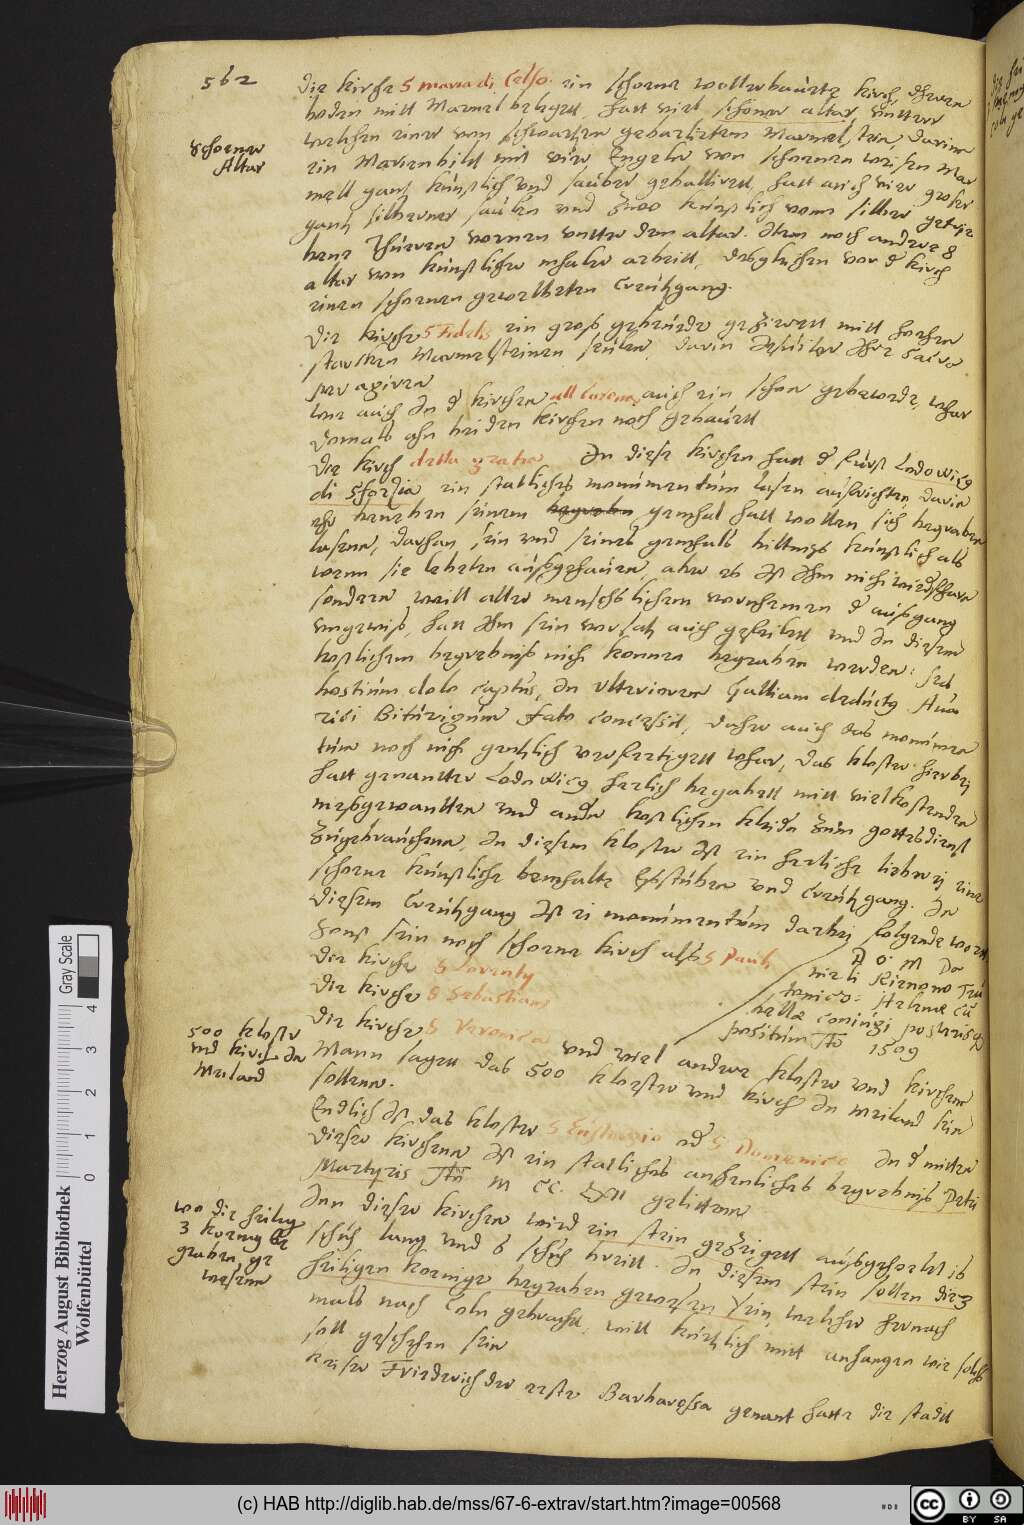 562
Die kirche S maria di Celso. ein schoene wollerbauete kirch deren
boden mitt Marmel belegtt, hatt viel schoener altar, vntter
welchen einer von schwartzen gebarlirtem Marmel, ten, darinn
ein Marienbildt mit vier Engeln von schoenen weisen Mar
mell gantz künstlich vnd sauber geballirett, hatt auch vier groser
gantz silberner säulen vnd zwoo künstlich vonn silber getrie
bene Thüeren vornen vntter dem altar. Item noch andere 8
altar von künstlicher mhaler arbeitt, desgleichen vor d kirch
einen schoenen gewelbeten Creützgang.
schoener
Altar
Die kirche S Fidele ein gros gebeüede gezierett mitt hoehen
starcken Marmelsteinen seülen, darin Jesüiter Ihre Sacra
peragiren
wie auch In d kirchen all Coreno auch ein schon gebeworde, whar
domals ahn beiden kirchen noch gebauett
Die kirch della gratia In dieser kirchen hatt d fürst Lodowicg
di Sforzia ein statliches monumentum lasen aufrichten, darin
ehr beneben seinem begraben gemhal hatt wollen sich begraben
lasenn, darhan sein vnd seines gemhals biltnus künstlich als
wenn sie lebeten ausgehauen, aber es Ist Ihm nich wiederfharn
sondern, weill aller menschlichem vornhemen d ausgang
vngewis, hatt Ihm sein vorsatz auch gefeilett vnd In diesem
kostlichem begrebnis nich konnen begraben werden: sed
hostium dolo captus, In vlteriorem Galliam deductg Aua
rici Biturigum fato concessit, daher auch das monumen
tum noch nich gentzlich verfertigett whar, das kloster hierbey
hatt genantter Lodowicg herlich begabett mitt viel kostenden
mesgewantten vnd ander kostlichen kleider zum gottesdienst
zugebrauchenn, In diesem kloster Ist ein herliche liberey eine
schoene künstliche bemhalte Esstuben vnd Creützgang. In
diesem Creützgang Ist ei monumentum darbey folgende wort
D O M Do
Sonst sein noch schoene kirch als S Pauli
nieli
Die kirche S Laurenty
Die kirche S Sebastiano
positum Ao 1509
Die kirche S Veronica vnd viel andere kloster vnd kirchenn
Mann sagett das 500 kloester vnd kirch In Meiland sein
sollenn.
500 kloster
vnd kirch In
Meiland
Endlich Ist das kloster S Eustorgio od S Domenico In d mitten
dieser kirchenn Ist ein statliches ansehenliches begrebnis Petri
Martyris Ao M CC. gelittenn
Inn dieser kirchen wird ein stein gezeigett ausgehoelet 16
schuh lang vnd 8 schuh breitt. In diesem stein sollen die 3
heiligen koenige begraben gewesen sein, welcher hernach
mals nach Coln gebracht, will kürtzlich mit anhangen wie solchs
soll geschehen sein
wo die heilig
3 koenig be
graben ge
wesenn
Keiser Friederich der erste Barbarossa genant hatte die stadtt
Herzog August Bibliothek
Wolfenbüttel
Gray Scale
0 1 2 3 4
(c) HAB http://diglib.hab.de/mss/67-6-extrav/start.htm?image=00568
BY SA